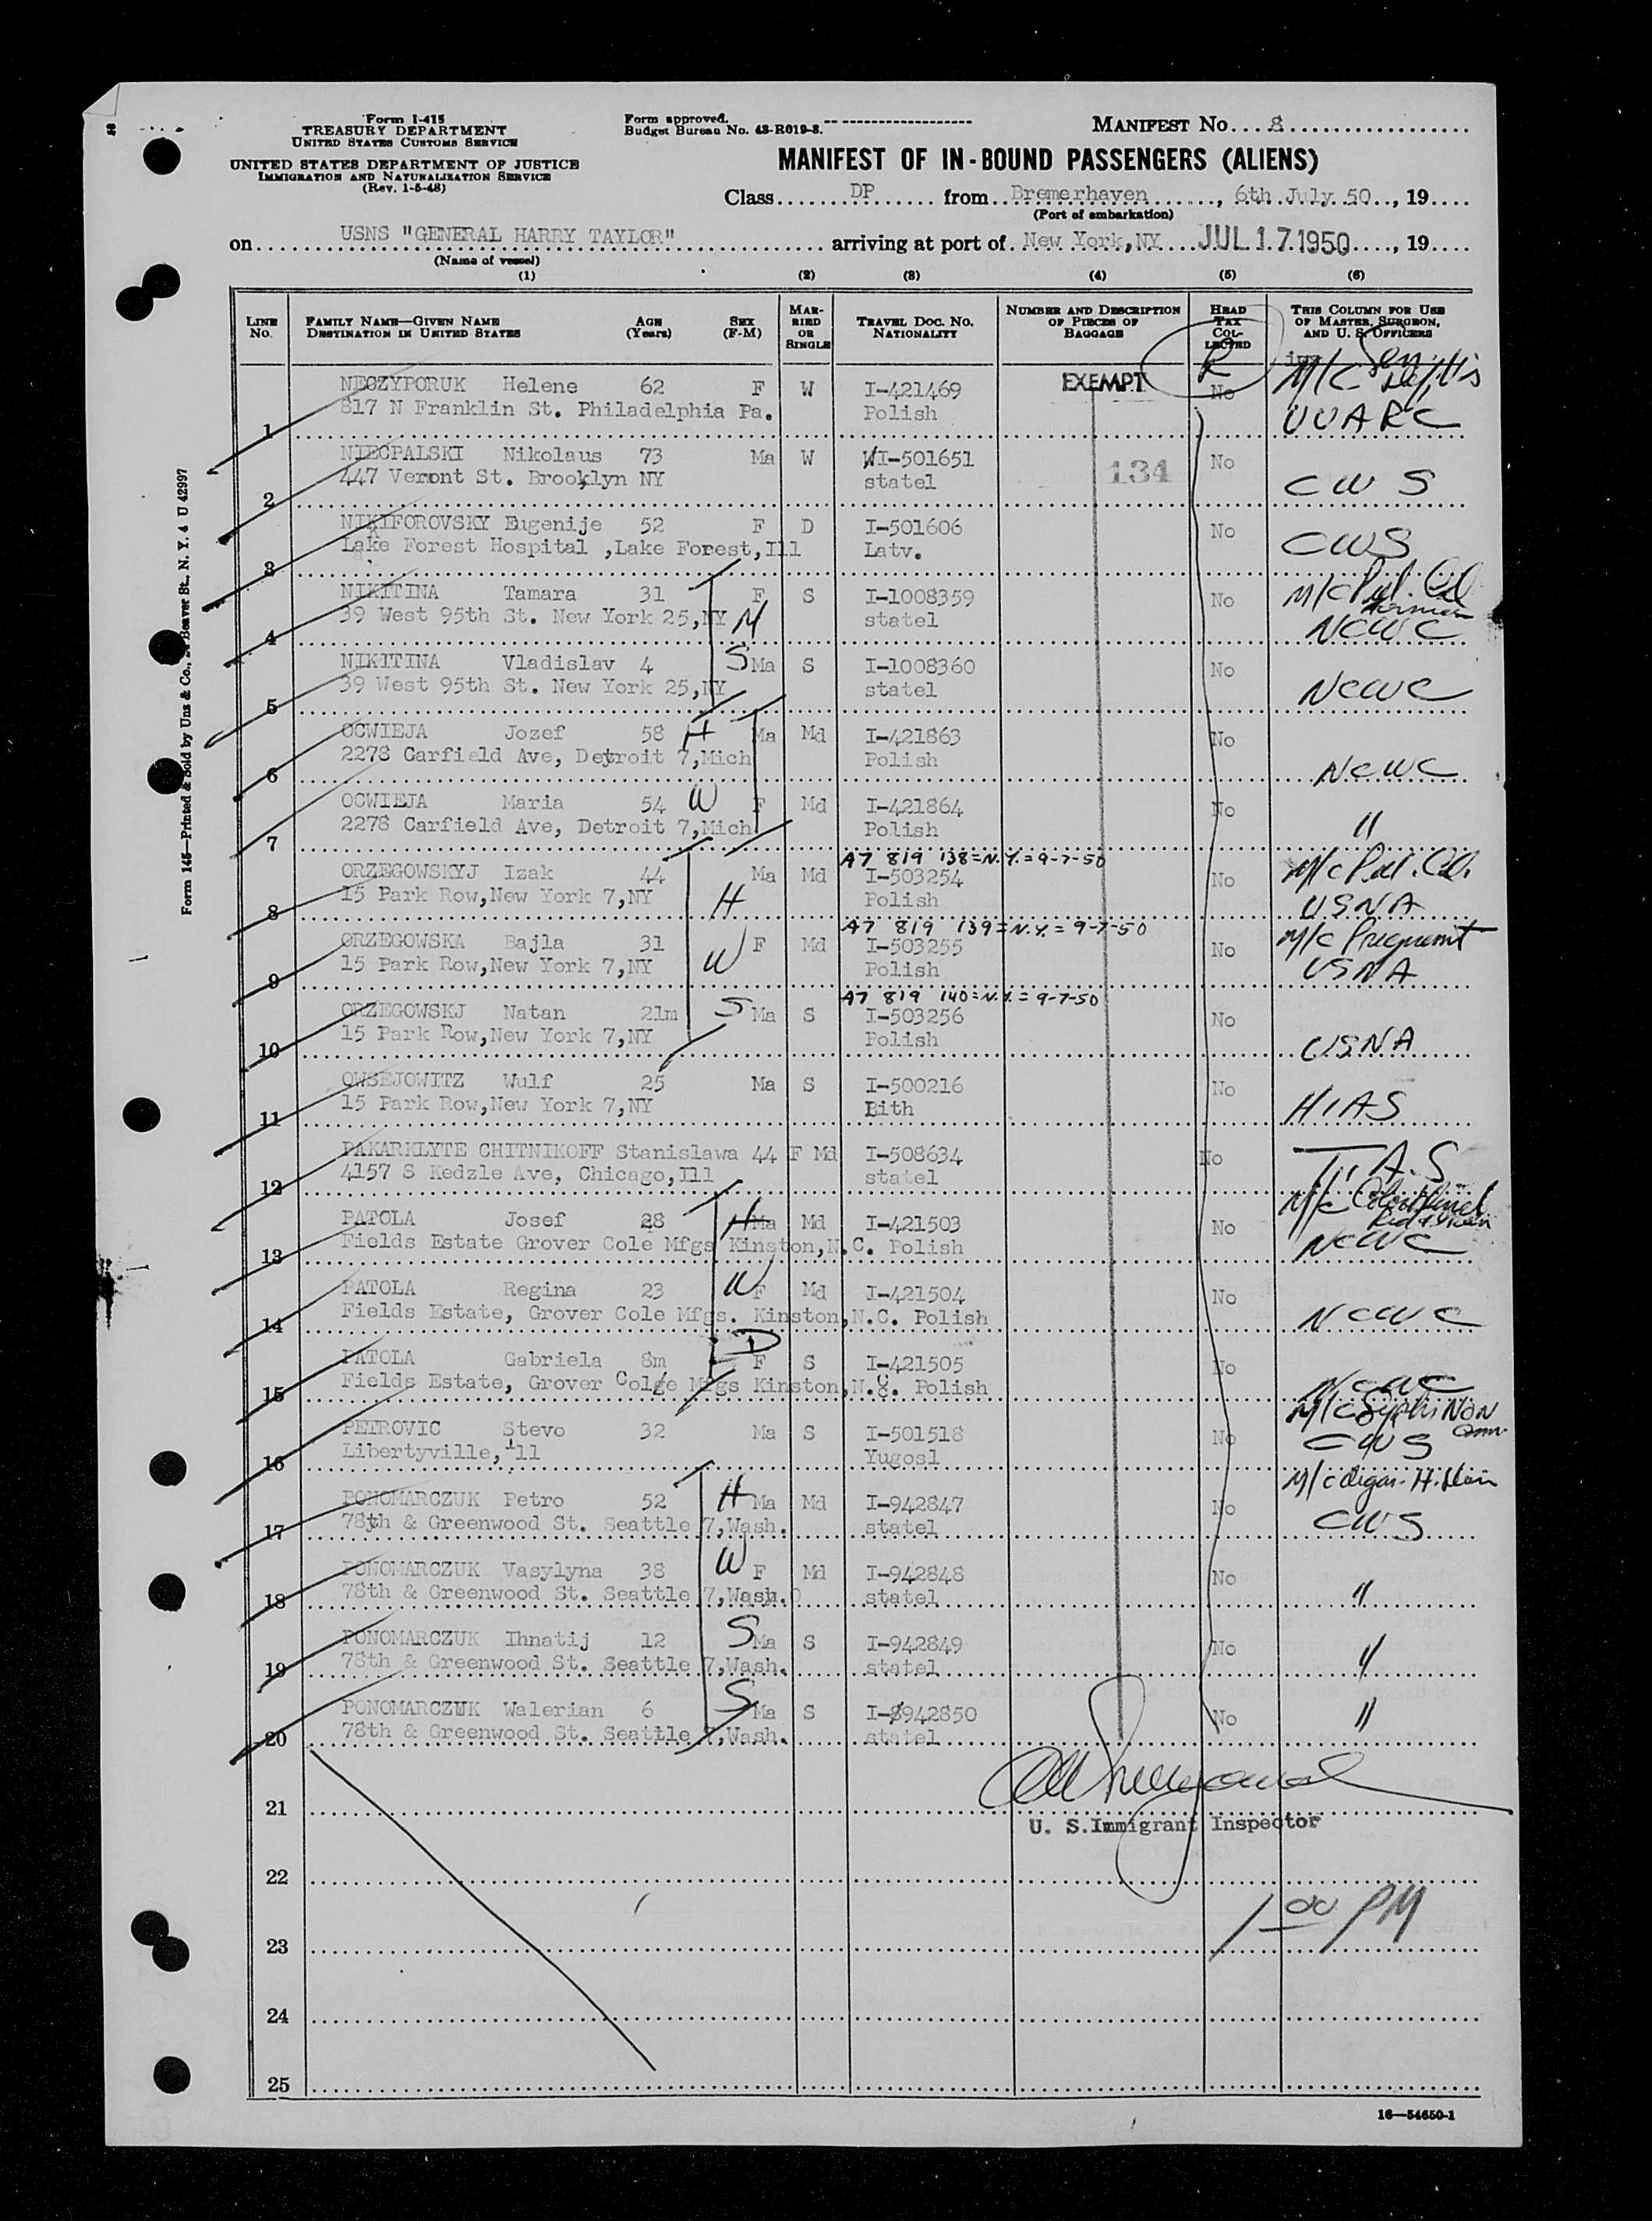 Form I-415
TREASURY DEPARTMENT
UNITED STATES CUSTOMS SERVICE
UNITED STATES DEPARTMENT OF JUSTICE
IMMIGRATION AND NATURALIZATION SERVICE
(Rev. 1-5-48)
Form approved.
Budget Bureau No. 43-R019-3.
MANIFEST No. 8
MANIFEST OF IN-BOUND PASSENGERS (ALIENS)
Class DP from Bremerhaven, 6th July 50, 19
(Port of embarkation)
on USNS "GENERAL HARRY TAYLOR" arriving at port of New York, NY JUL 17 1950, 19
(Name of vessel)
(1) (2) (3) (4) (5) (6)
LINE No. FAMILY NAME—GIVEN NAME DESTINATION IN UNITED STATES AGE (Years) SEX (F-M) MARRIED OR SINGLE TRAVEL DOC. NO. NATIONALITY NUMBER AND DESCRIPTION OF PIECES OF BAGGAGE HEAD TAX COLLECTED THIS COLUMN FOR USE OF MASTER, SURGEON, AND U. S. OFFICERS
R
NECZYPORUK Helene 62 F W I-421469 EXEMPT No M/C
1 817 N Franklin St. Philadelphia Pa. Polish UUARC
NIECPALSKI Nikolaus 73 Ma W WI-501651 134 No
2 447 Vermont St. Brooklyn NY statel CWS
NIKIFOROVSKY Eugenije 52 F D I-501606 No
3 Lake Forest Hospital ,Lake Forest,Ill Latv. CWS
NIKITINA Tamara 31 F S I-1008359 No M/C
4 39 West 95th St. New York 25,NY M statel NCWC
NIKITINA Vladislav 4 S Ma S I-1008360 No
5 39 West 95th St. New York 25,NY statel NCWC
OCWIEJA Jozef 58 H Ma Md I-421863 No
6 2278 Carfield Ave, Detroit 7,Mich Polish NCWC
OCWIEJA Maria 54 W F Md I-421864 No
7 2278 Carfield Ave, Detroit 7,Mich Polish "
A7 819 138=N.Y.=9-7-50
ORZEGOWSKYJ Izak 44 Ma Md I-503254 No M/C
8 15 Park Row,New York 7,NY H Polish USNA
A7 819 139=N.Y.=9-7-50
ORZEGOWSKA Bajla 31 F Md I-503255 No M/C Pregnant
9 15 Park Row,New York 7,NY W Polish USNA
A7 819 140=N.Y.=9-7-50
ORZEGOWSKJ Natan 21m S Ma S I-503256 No
10 15 Park Row,New York 7,NY Polish USNA
OWSEJOWITZ Wulf 25 Ma S I-500216 No
11 15 Park Row,New York 7,NY Lith HIAS
PAKARKLYTE CHITNIKOFF Stanislawa 44 F Md I-508634 No
12 4157 S Kedzle Ave, Chicago,Ill statel
PATOLA Josef 28 H Ma Md I-421503 No M/C
13 Fields Estate Grover Cole Mfgs Kinston,N.C. Polish NCWC
PATOLA Regina 23 W F Md I-421504 No
14 Fields Estate, Grover Cole Mfgs. Kinston,N.C. Polish NCWC
PATOLA Gabriela 8m D F S I-421505 No
15 Fields Estate, Grover Cole Mfgs Kinston,N.C. Polish NCWC
PETROVIC Stevo 32 Ma S I-501518 No M/C
16 Libertyville, Ill Yugosl CWS
PONOMARCZUK Petro 52 H Ma Md I-942847 No M/C
17 78th & Greenwood St. Seattle 7,Wash. statel CWS
PONOMARCZUK Vasylyna 38 W F Md I-942848 No
18 78th & Greenwood St. Seattle 7,Wash. statel "
PONOMARCZUK Ihnatij 12 S Ma S I-942849 No
19 78th & Greenwood St. Seattle 7,Wash. statel "
PONOMARCZUK Walerian 6 S Ma S I-942850 No
20 78th & Greenwood St. Seattle 7,Wash. statel "
21
U. S. Immigrant Inspector
22
1 00 PM
23
24
25
16—54650-1